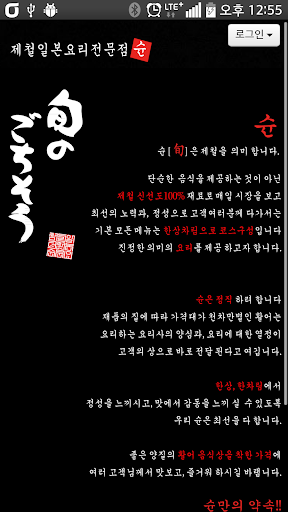 오후 12:55
LTE
로그인
제철일본요리전문점 순
旬の
ごちそう
순
순[旬]은 제철을 의미 합니다.
단순한 음식을 제공하는 것이 아닌
제철 신선도100% 재료로 매일 시장을 보고
최선의 노력과, 정성으로 고객여러분께 다가서는
기본 모든 메뉴는 한상차림으로 코스구성입니다
진정한 의미의 요리를 제공 하고자 합니다.
순은 정직 하려 합니다
재품의 질에 따라 가격대가 천차만별인 활어는
요리하는 요리사의 양심과, 요리에 대한 열정이
고객의 상으로 바로 전달 된다고 여깁니다.
한상, 한차림에서
정성을 느끼시고, 맛에서 감동을 느끼 실 수 있도록
우리 순은 최선을 다 합니다.
좋은 양질의 활어 음식상을 착한 가격에
여러 고객님께서 맛보고, 즐거워 하시길 바랍니다.
순만의 약속!!